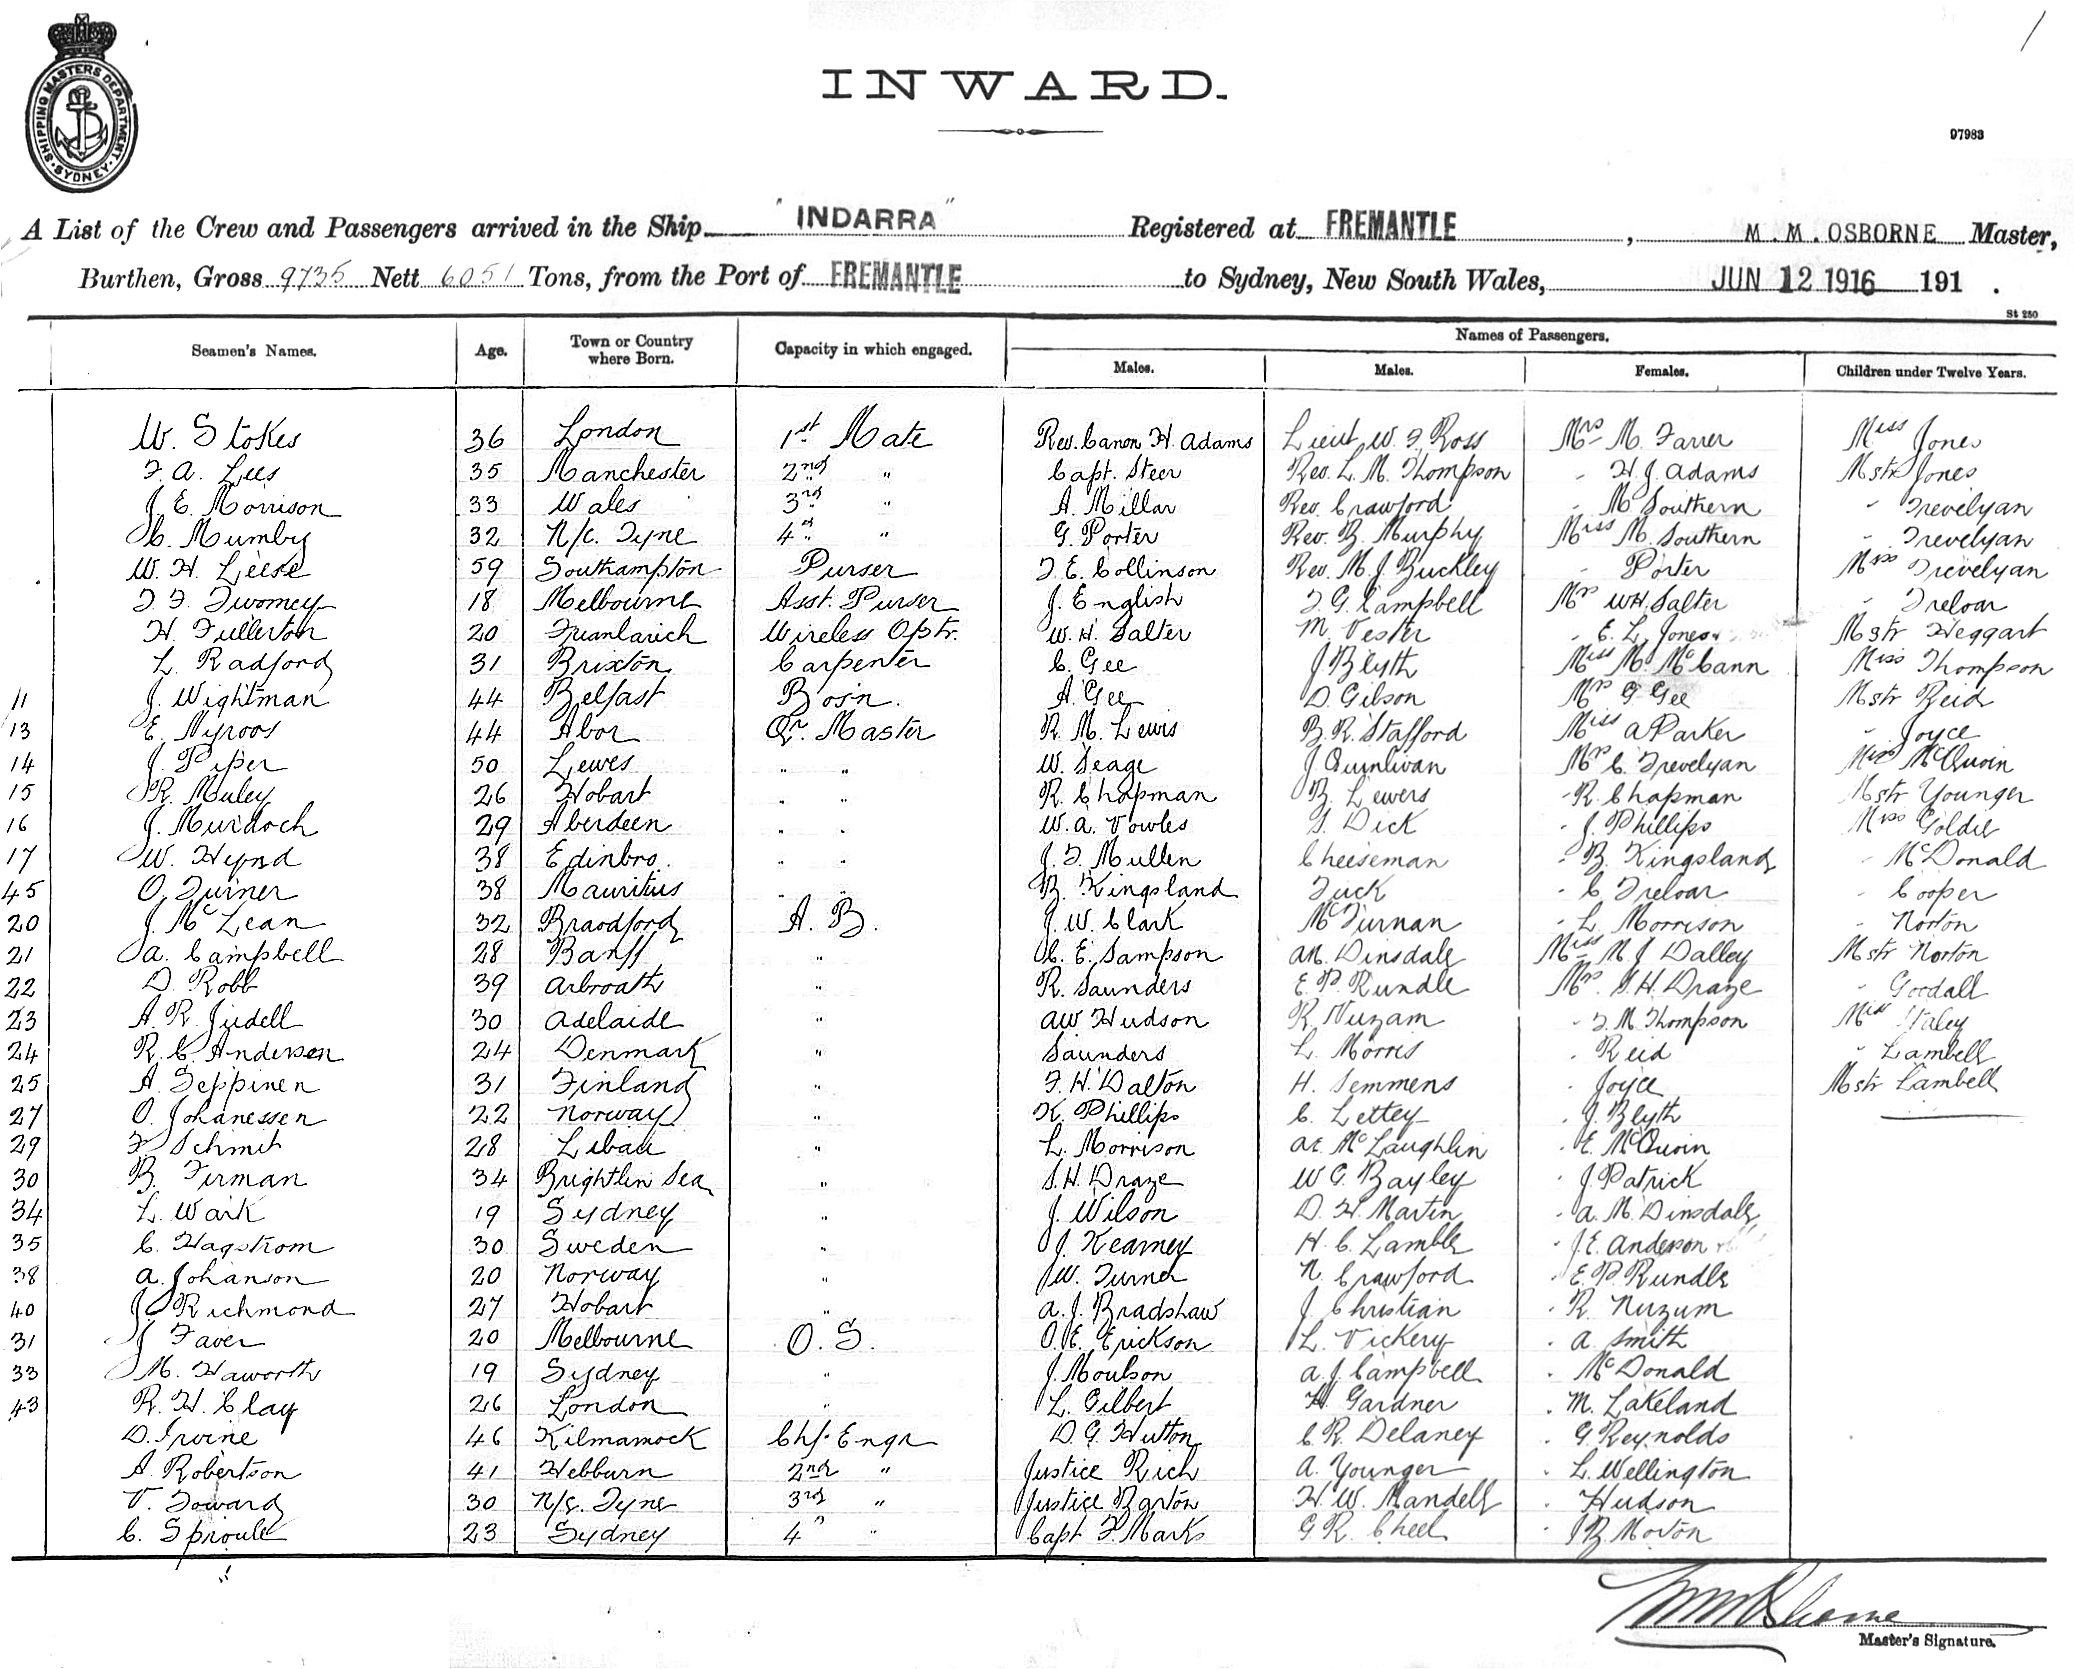 SHIPPING MASTERS DEPARTMENT · SYDNEY ·
INWARD.
97983
A List of the Crew and Passengers arrived in the Ship "INDARRA" Registered at FREMANTLE, M. M. OSBORNE Master,
Burthen, Gross 9735 Nett 6051 Tons, from the Port of FREMANTLE to Sydney, New South Wales, JUN 12 1916 191 .
St 250
Seamen's Names. Age. Town or Country where Born. Capacity in which engaged. Names of Passengers.
Males. Males. Females. Children under Twelve Years.
W. Stokes 36 London 1st Mate Rev. Canon H. Adams Lieut W. F. Ross Mrs M. Farrer Miss Jones
F. A. Lees 35 Manchester 2nd " Capt. Steer Rev. L. M. Thompson - H. J. Adams Mstr Jones
J. E. Morrison 33 Wales 3rd " A. Millar Rev. Crawford - M Southern - Trevelyan
C. Mumby 32 N/c. Tyne 4th " G. Porter Rev. B. Murphy Miss M. Southern - Trevelyan
W. H. Leese 59 Southampton Purser T. E. Collinson Rev. M. J. Buckley - Porter Miss Trevelyan
T. F. Twomey 18 Melbourne Asst. Purser J. English T. G. Campbell Mrs W H. Salter - Treloar
H. Fullerton 20 Wireless Optr. W. H. Salter M. Vester - E. L. Jones Mstr Heggart
L. Radford 31 Brixton Carpenter C. Gee J Blyth Miss M. McCann Miss Thompson
11 J. Wightman 44 Belfast Bosn. A. Gee D. Gibson Mrs G Gee Mstr Reid
13 E. Nyroos 44 Abor Qr. Master R. M. Lewis B. R. Stafford Miss A Parker - Joyce
14 J. Piper 50 Lewes " " W. Seage J Quinlivan Mrs C. Trevelyan Miss McQuoin
15 R. Muley 26 Hobart " " R. Chapman B. Lewers - R. Chapman Mstr Younger
16 J. Murdoch 29 Aberdeen " " W. A. Vowles S. Dick - J. Phillips Miss Goldie
17 W. Hynd 38 Edinbro. " " J. F. Mullen Cheeseman - B. Kingsland - McDonald
45 O. Turner 38 Mauritius " " B. Kingsland Tuck - C Treloar - Cooper
20 J. McLean 32 Braodford A. B. J. W. Clark McTurnan - L. Morrison - Norton
21 A. Campbell 28 Banff " C. E. Sampson AM. Dinsdale Miss M. J Dalley Mstr Norton
22 D. Robb 39 Arbroath " R. Saunders E. P. Rundle Mrs. S. H. Draze - Goodall
23 A. R. Judell 30 Adelaide " AW Hudson R Nuzam - T. M. Thompson Miss Staley
24 R. C. Andersen 24 Denmark " Saunders L. Morris - Reid - Lambell
25 A. Seppinen 31 Finland " F. H. Dalton H. Semmens - Joyce Mstr Lambell
27 O. Johanessen 22 Norway " K. Phillips C. Lettey - J. Blyth
29 F Schmit 28 Libau " L. Morrison AE. McLaughlin - E. McQuoin
30 B. Firman 34 Brightlin Sea " S. H. Draze W G. Bayley - J. Patrick
34 L. Wark 19 Sydney " J. Wilson D. H. Martin - A. M. Dinsdale
35 C. Hagstrom 30 Sweden " J. Kearney H. C. Lamble - J. E. Anderson
38 A. Johanson 20 Norway " W. Turner N. Crawford - E. P. Rundle
40 J. Richmond 27 Hobart " A. J. Bradshaw J. Christian - R. Nuzum
31 J Faver 20 Melbourne O. S. O. E. Erickson L. Vickery - A. Smith
33 M. Haworth 19 Sydney " J. Moulson A. J. Campbell - McDonald
43 R. H. Clay 26 London " L. Gilbert H. Gardner - M. Lakeland
D. Irvine 46 Kilmarnock Chf. Engr D. G. Hutton C R. Delaney - G. Reynolds
A. Robertson 41 Hebburn 2nd " Justice Rich A. Younger - L. Wellington
V. Toward 30 N/c. Tyne 3rd " Justice Barton H. W. Mandell - Hudson
C. Sproule 23 Sydney 4th " Capt F. Marks G. R. Cheel - J B. Moxon
Master's Signature.